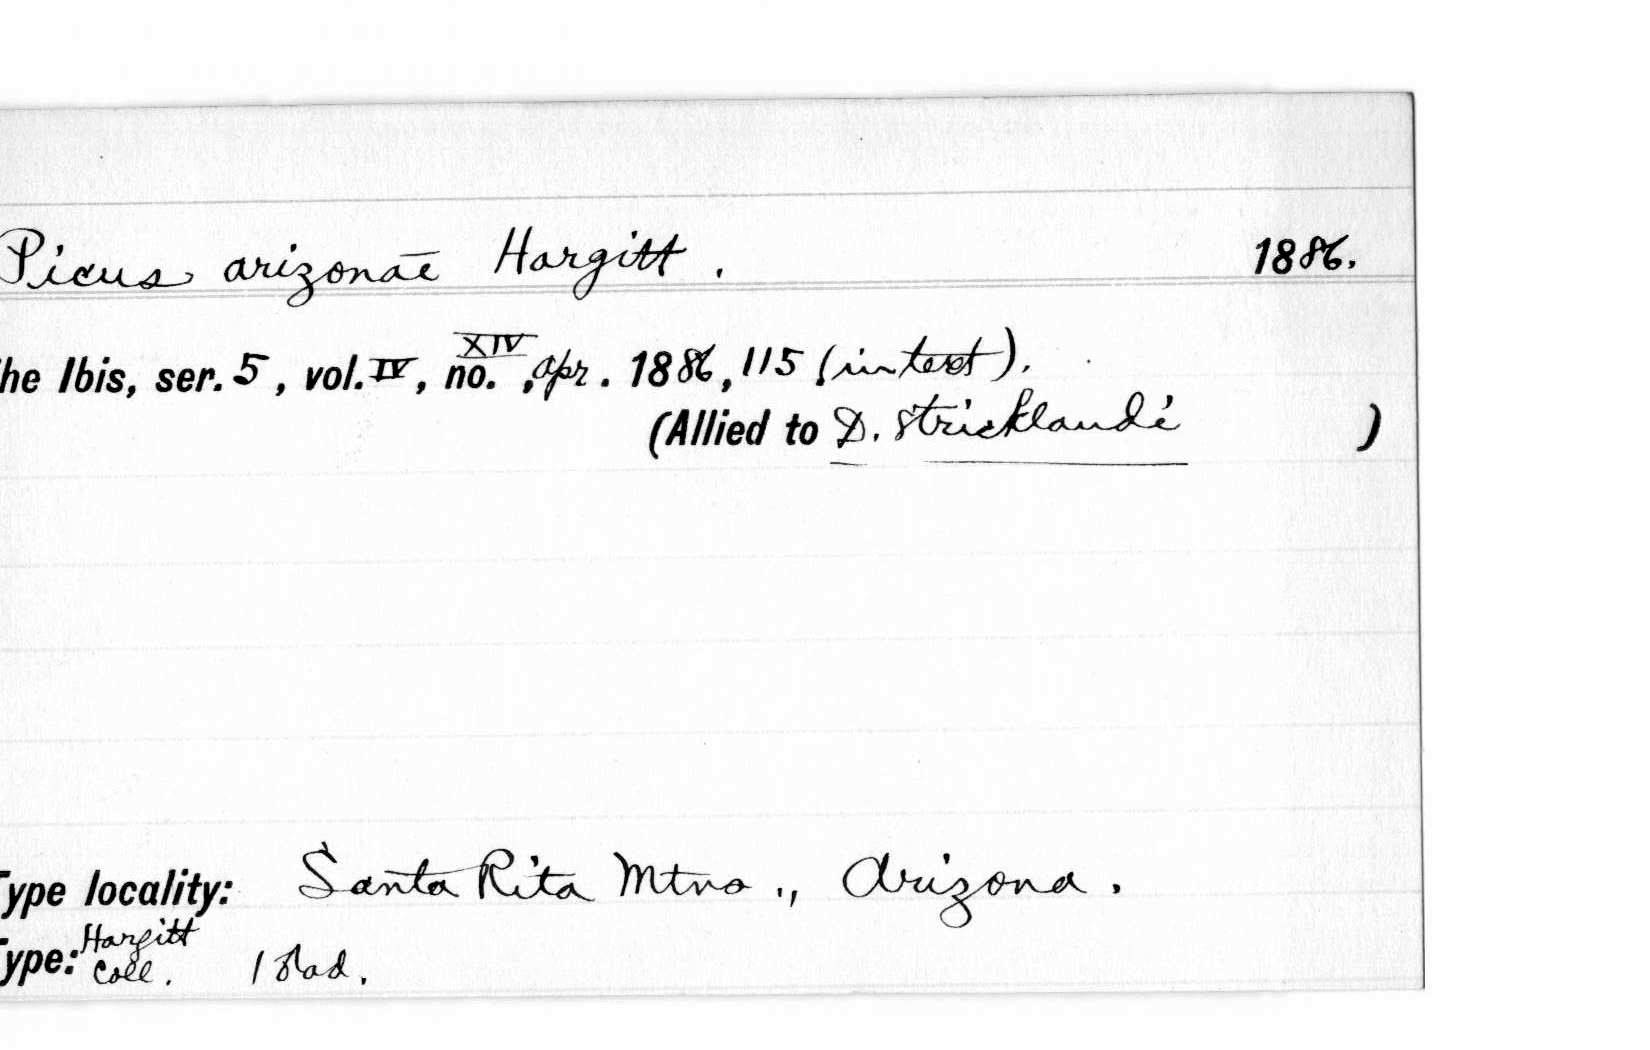 Picus arizonae Hargitt. 1886.
he Ibis, ser. 5, vol. IV, no. XIV, Apr. 1886, 115 (in text).
(Allied to D. stricklandi )
Type locality: Santa Rita Mtns., Arizona.
Type: Hargitt Coll. 1 ad.